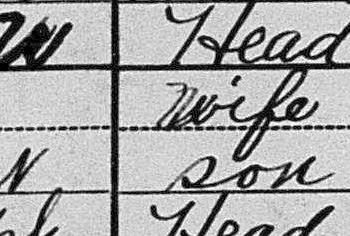 Head
Wife
N son
Head